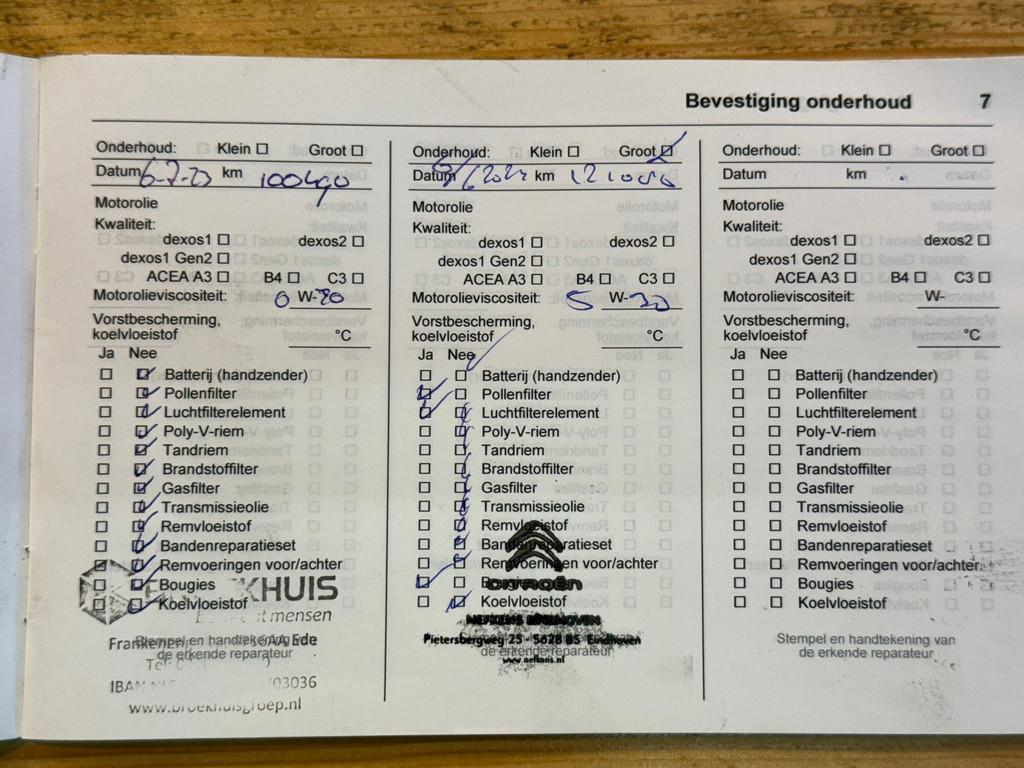 Bevestiging onderhoud 7
Onderhoud: Klein ☐ Groot ☐
Datum 6-7-23 km
Motorolie
Kwaliteit:
dexos1 ☐ dexos2 ☐
dexos1 Gen2 ☐
ACEA A3 ☐ B4 ☐ C3 ☐
Motorolieviscositeit: 0 W-20
Vorstbescherming,
koelvloeistof °C
Ja Nee
Batterij (handzender)
Pollenfilter
Luchtfilterelement
Poly-V-riem
Tandriem
Brandstoffilter
Gasfilter
Transmissieolie
Remvloeistof
Bandenreparatieset
Remvoeringen voor/achter
Bougies
Koelvloeistof
KHUIS
mensen
Ede
Stempel en handtekening
de erkende reparateur
IBAN 03036
www.broekhuisgroep.nl
Onderhoud: Klein ☐ Groot ☑
Datum km
Motorolie
Kwaliteit:
dexos1 ☐ dexos2 ☐
dexos1 Gen2 ☐
ACEA A3 ☐ B4 ☐ C3 ☐
Motorolieviscositeit: 5 W-30
Vorstbescherming,
koelvloeistof °C
Ja Nee
Batterij (handzender)
Pollenfilter
Luchtfilterelement
Poly-V-riem
Tandriem
Brandstoffilter
Gasfilter
Transmissieolie
Remvloeistof
Bandenreparatieset
Remvoeringen voor/achter
Koelvloeistof
CITROËN
NEFKENS EINDHOVEN
Pietersbergweg 25 - 5628 BS Eindhoven
de erkende reparateur
www.nefkens.nl
Onderhoud: Klein ☐ Groot ☐
Datum km
Motorolie
Kwaliteit:
dexos1 ☐ dexos2 ☐
dexos1 Gen2 ☐
ACEA A3 ☐ B4 ☐ C3 ☐
Motorolieviscositeit: W-
Vorstbescherming,
koelvloeistof °C
Ja Nee
Batterij (handzender)
Pollenfilter
Luchtfilterelement
Poly-V-riem
Tandriem
Brandstoffilter
Gasfilter
Transmissieolie
Remvloeistof
Bandenreparatieset
Remvoeringen voor/achter
Bougies
Koelvloeistof
Stempel en handtekening van
de erkende reparateur